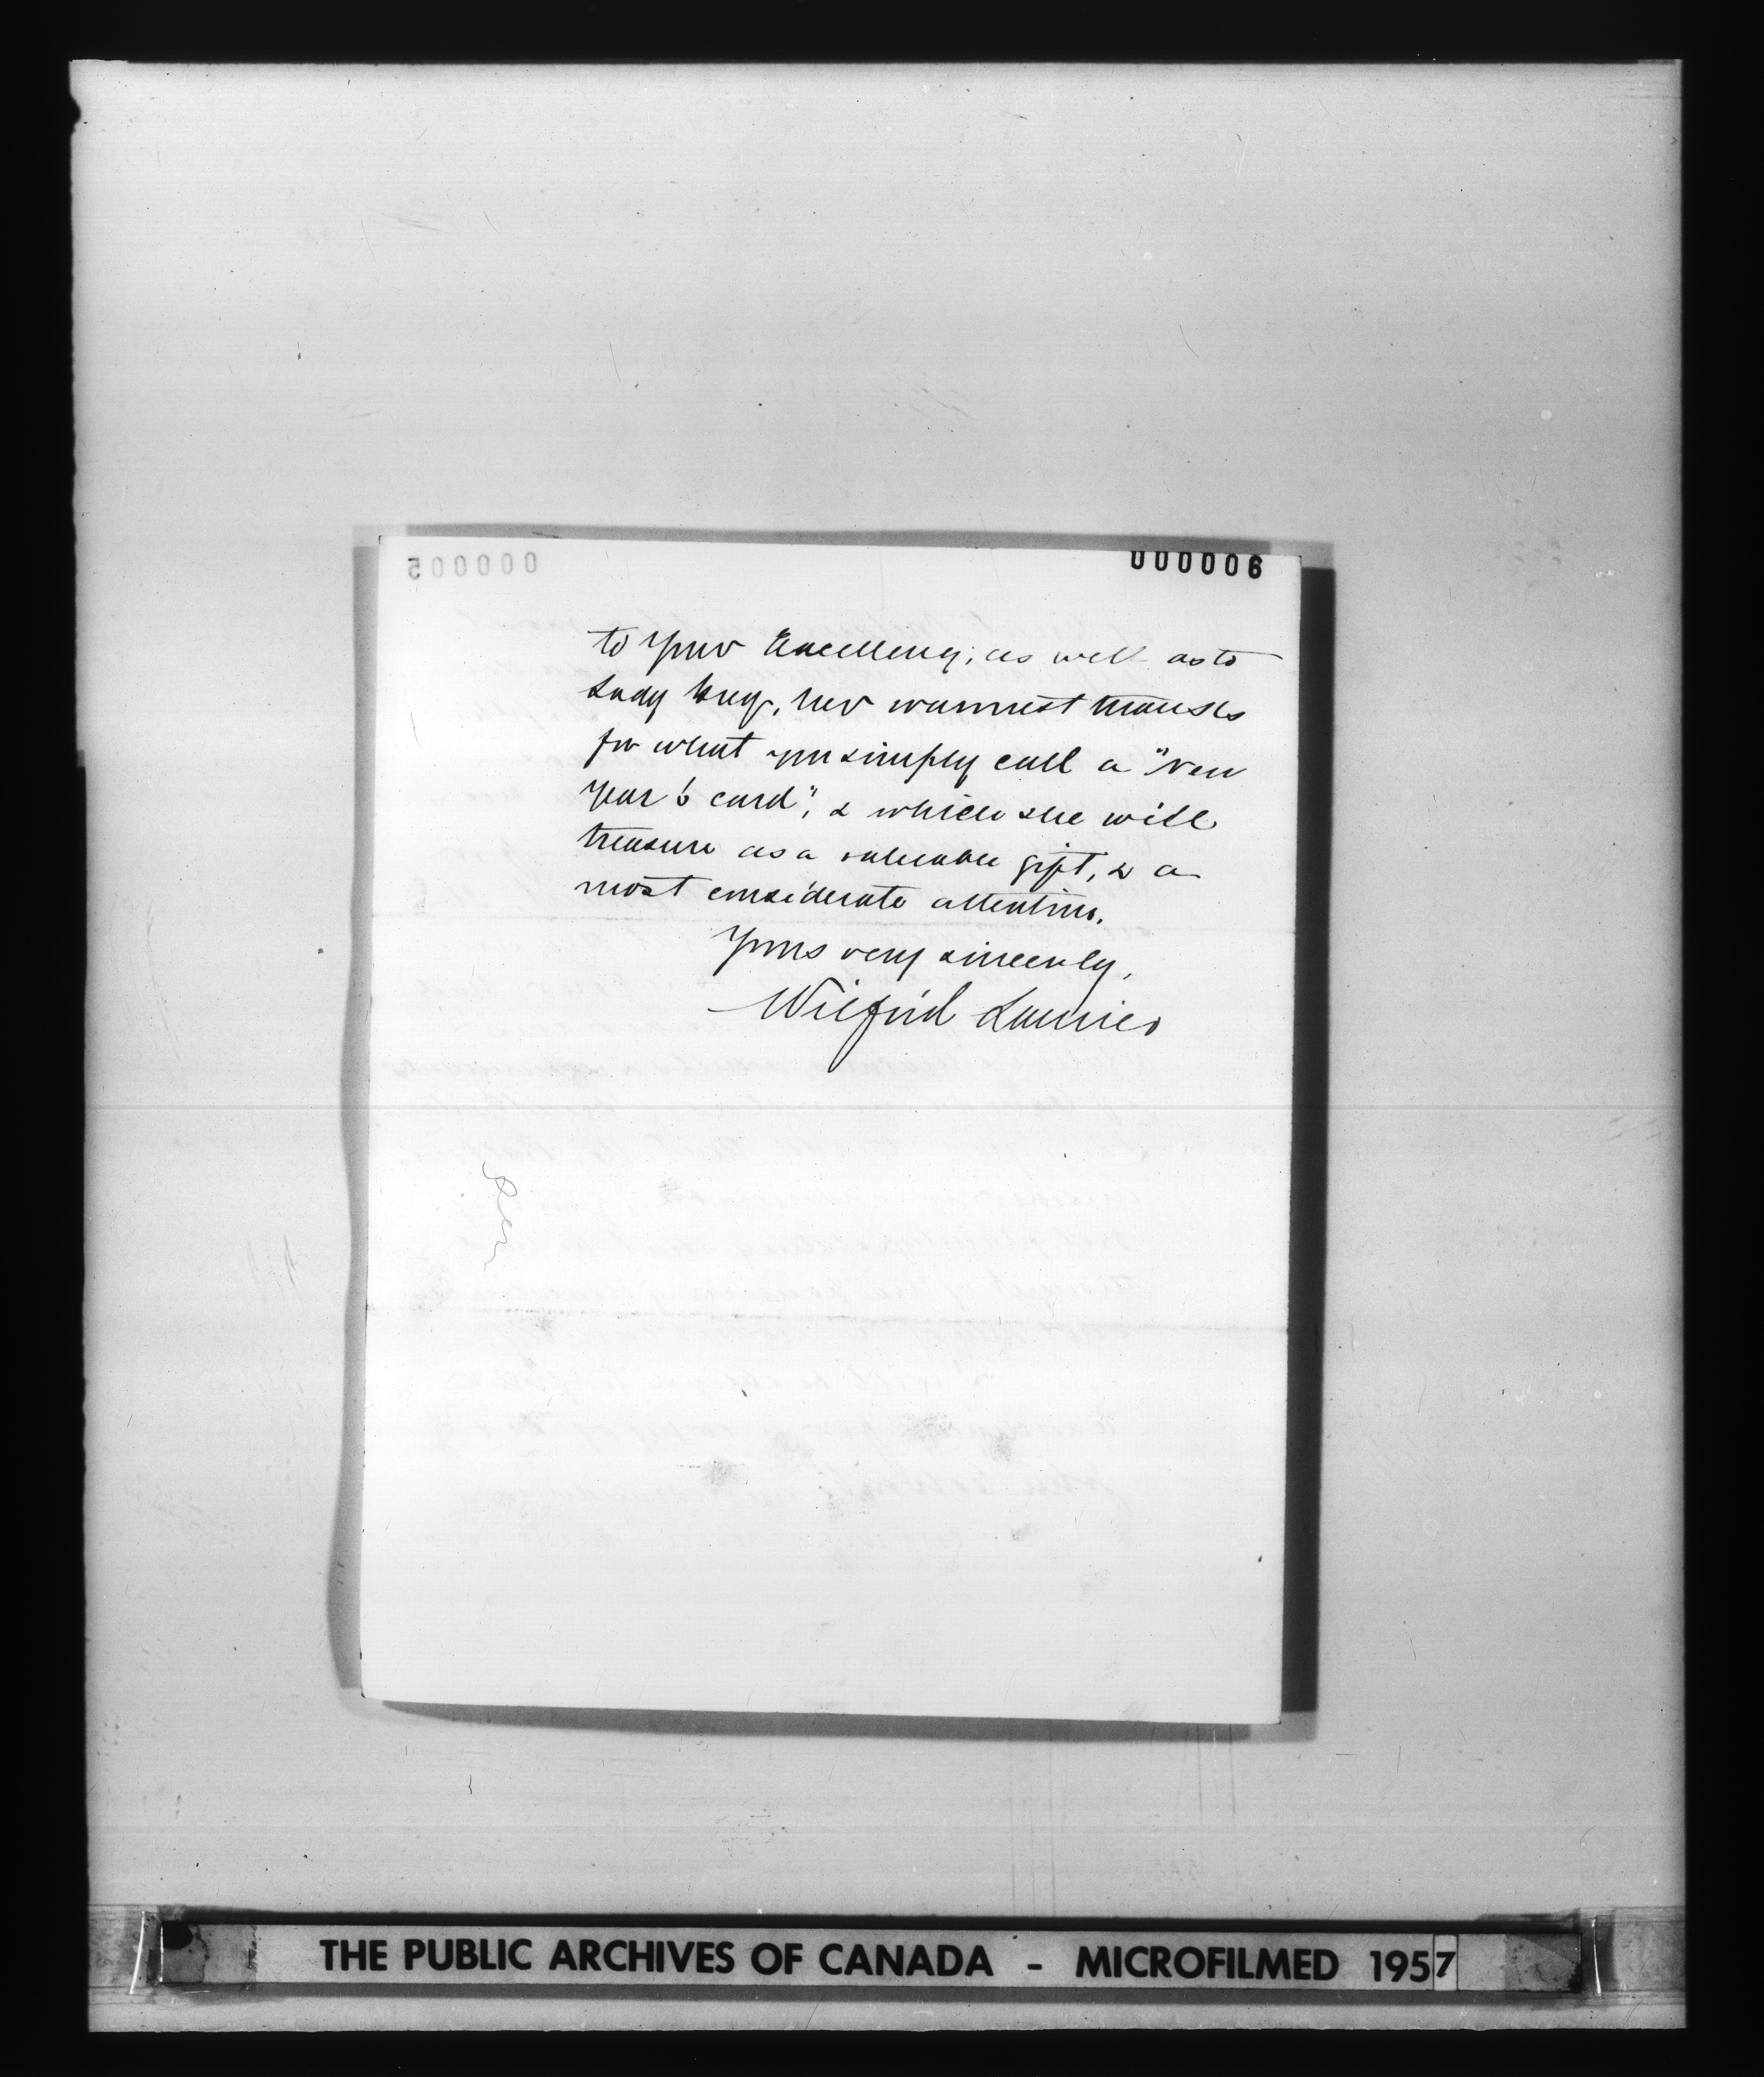 000006
000005
to your Excellency, as well as to
Lady Grey, her warmest thanks
for what you simply call a "New
Year's card", & which she will
treasure as a valuable gift, & a
most considerate attention.
Yours very sincerely,
Wilfrid Laurier
THE PUBLIC ARCHIVES OF CANADA - MICROFILMED 1957